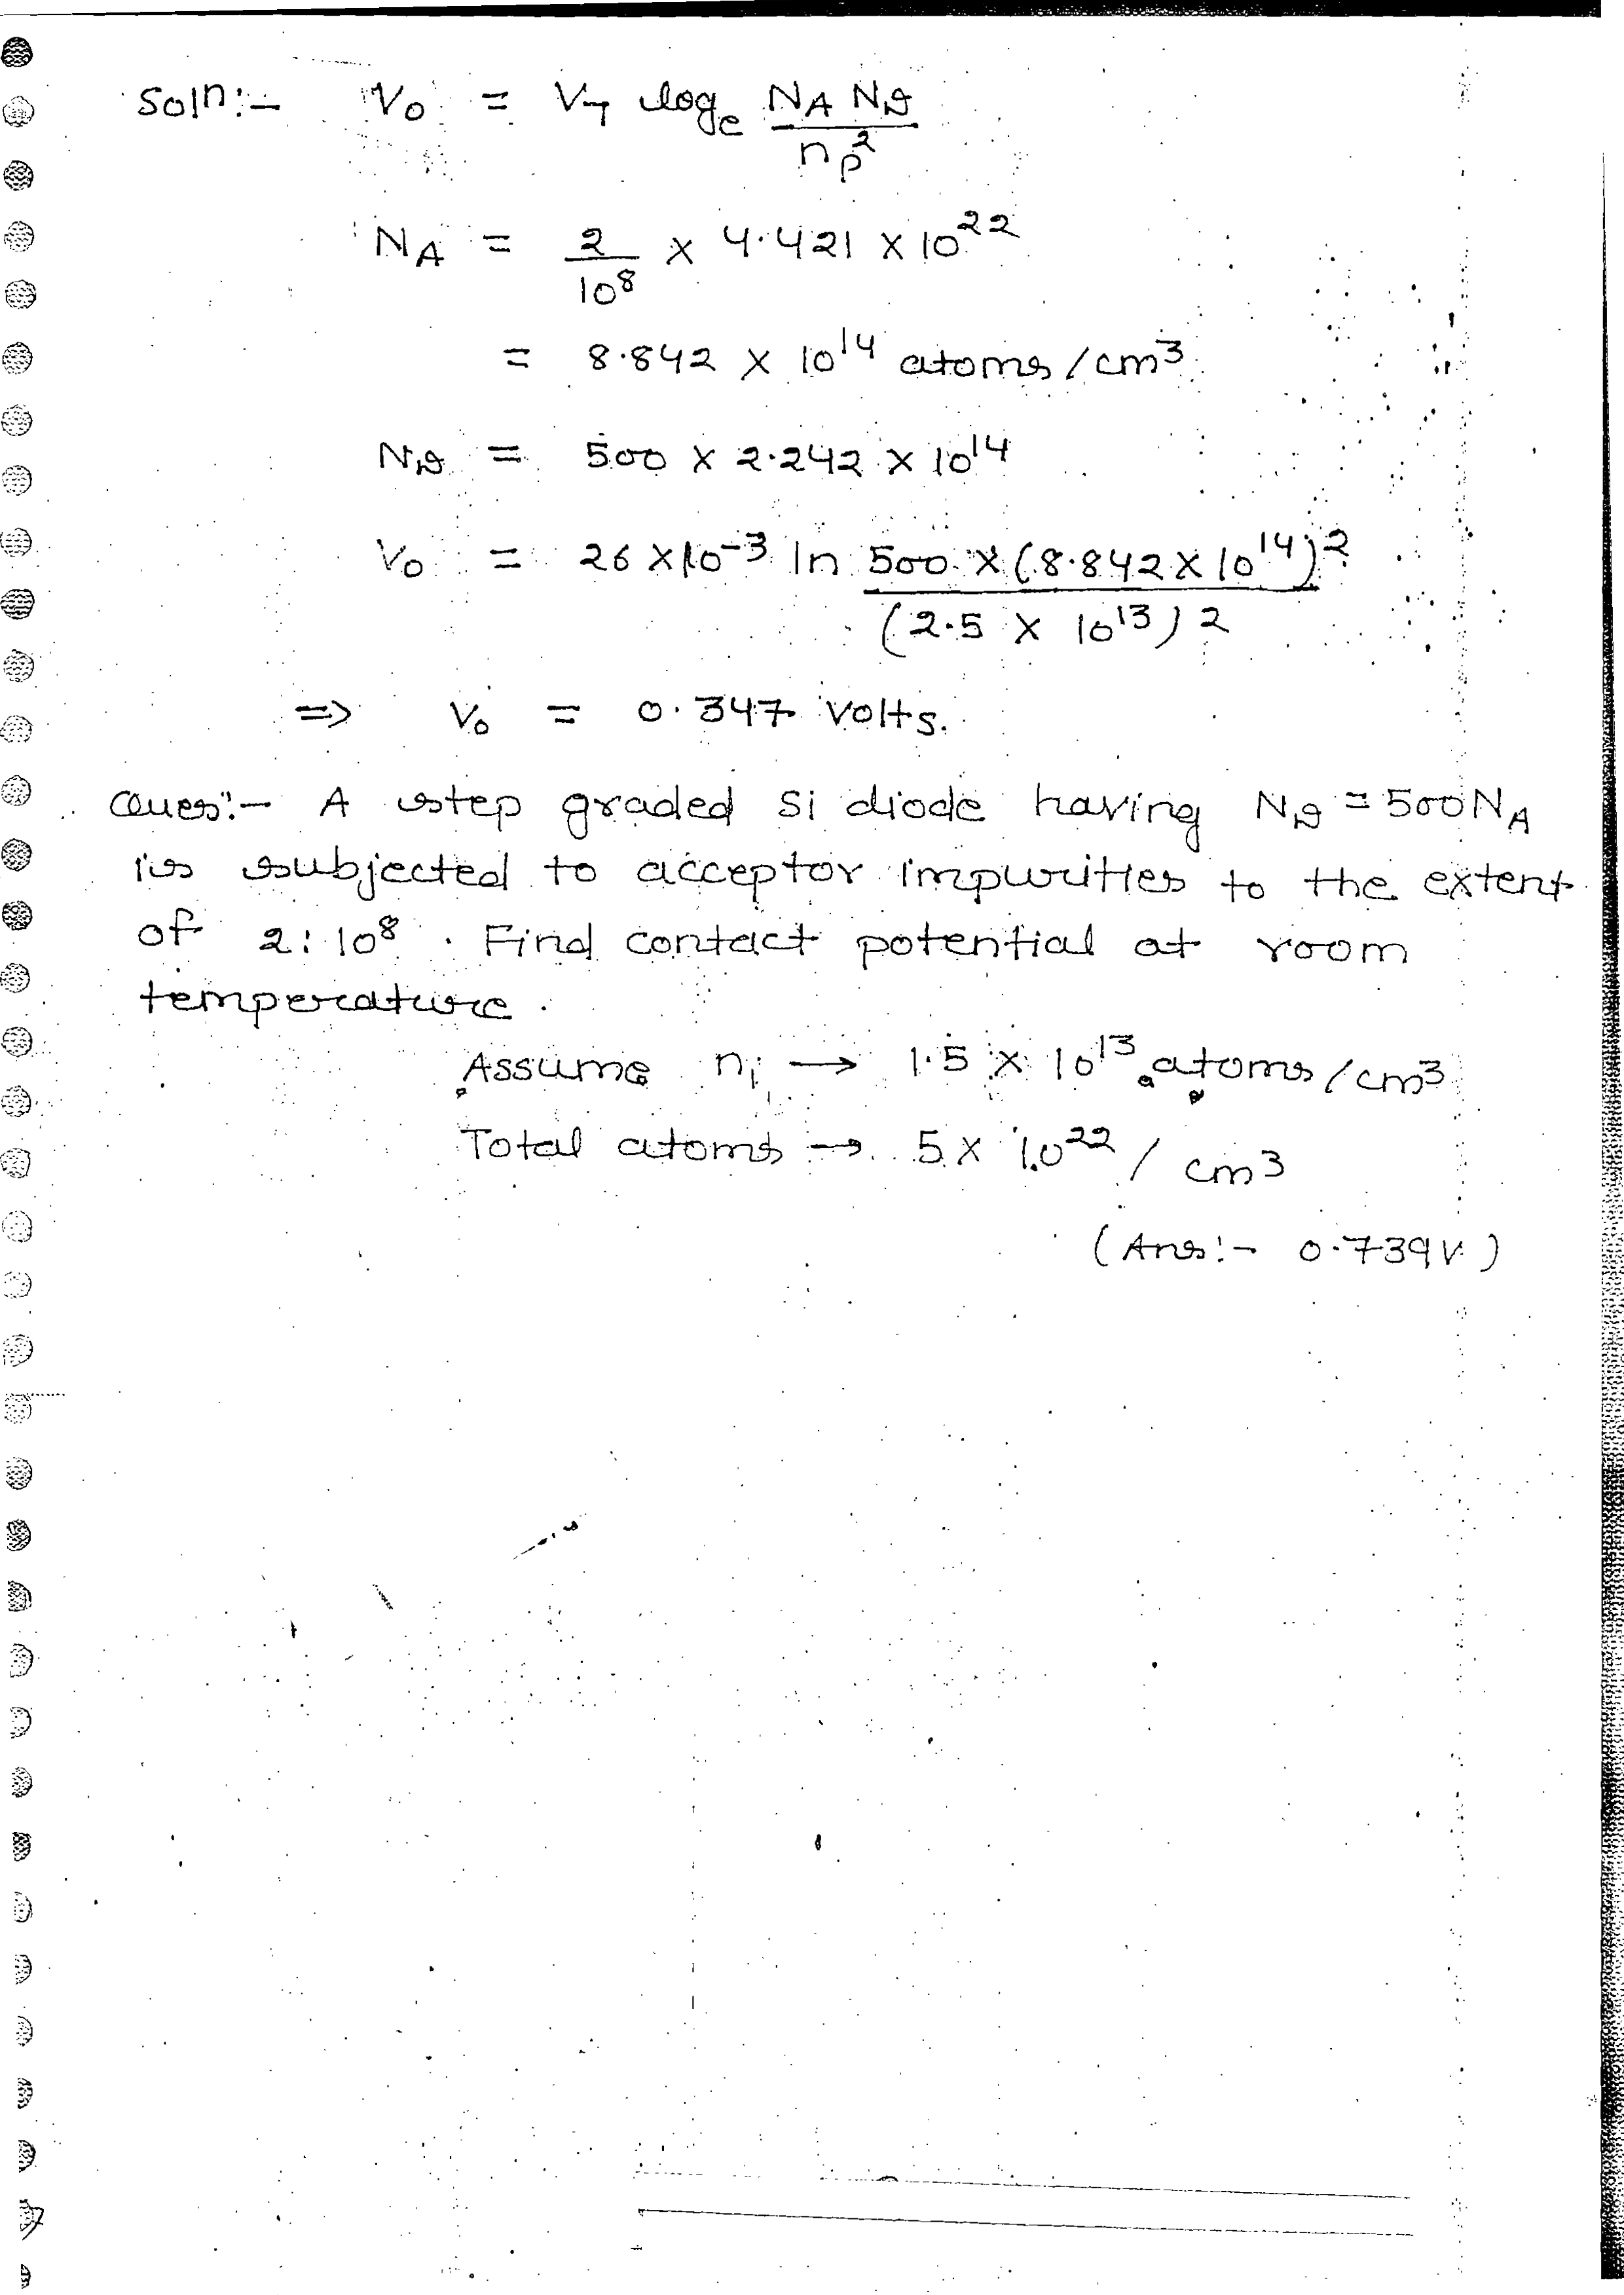 Soln:- V₀ = V_T logₑ N_A N_D / n_p²
N_A = 2/10⁸ × 4.421 × 10²²
= 8.842 × 10¹⁴ atoms/cm³
N_D = 500 × 2.242 × 10¹⁴
V₀ = 26 × 10⁻³ ln 500 × (8.842 × 10¹⁴)² / (2.5 × 10¹³)2
=> V₀ = 0.347 volts.
Ques:- A step graded Si diode having N_D = 500N_A
is subjected to acceptor impurities to the extent
of 2:10⁸. Find contact potential at room
temperature.
Assume nᵢ → 1.5 × 10¹³ atoms/cm³
Total atoms → 5 × 10²² / cm³
(Ans:- 0.739V)